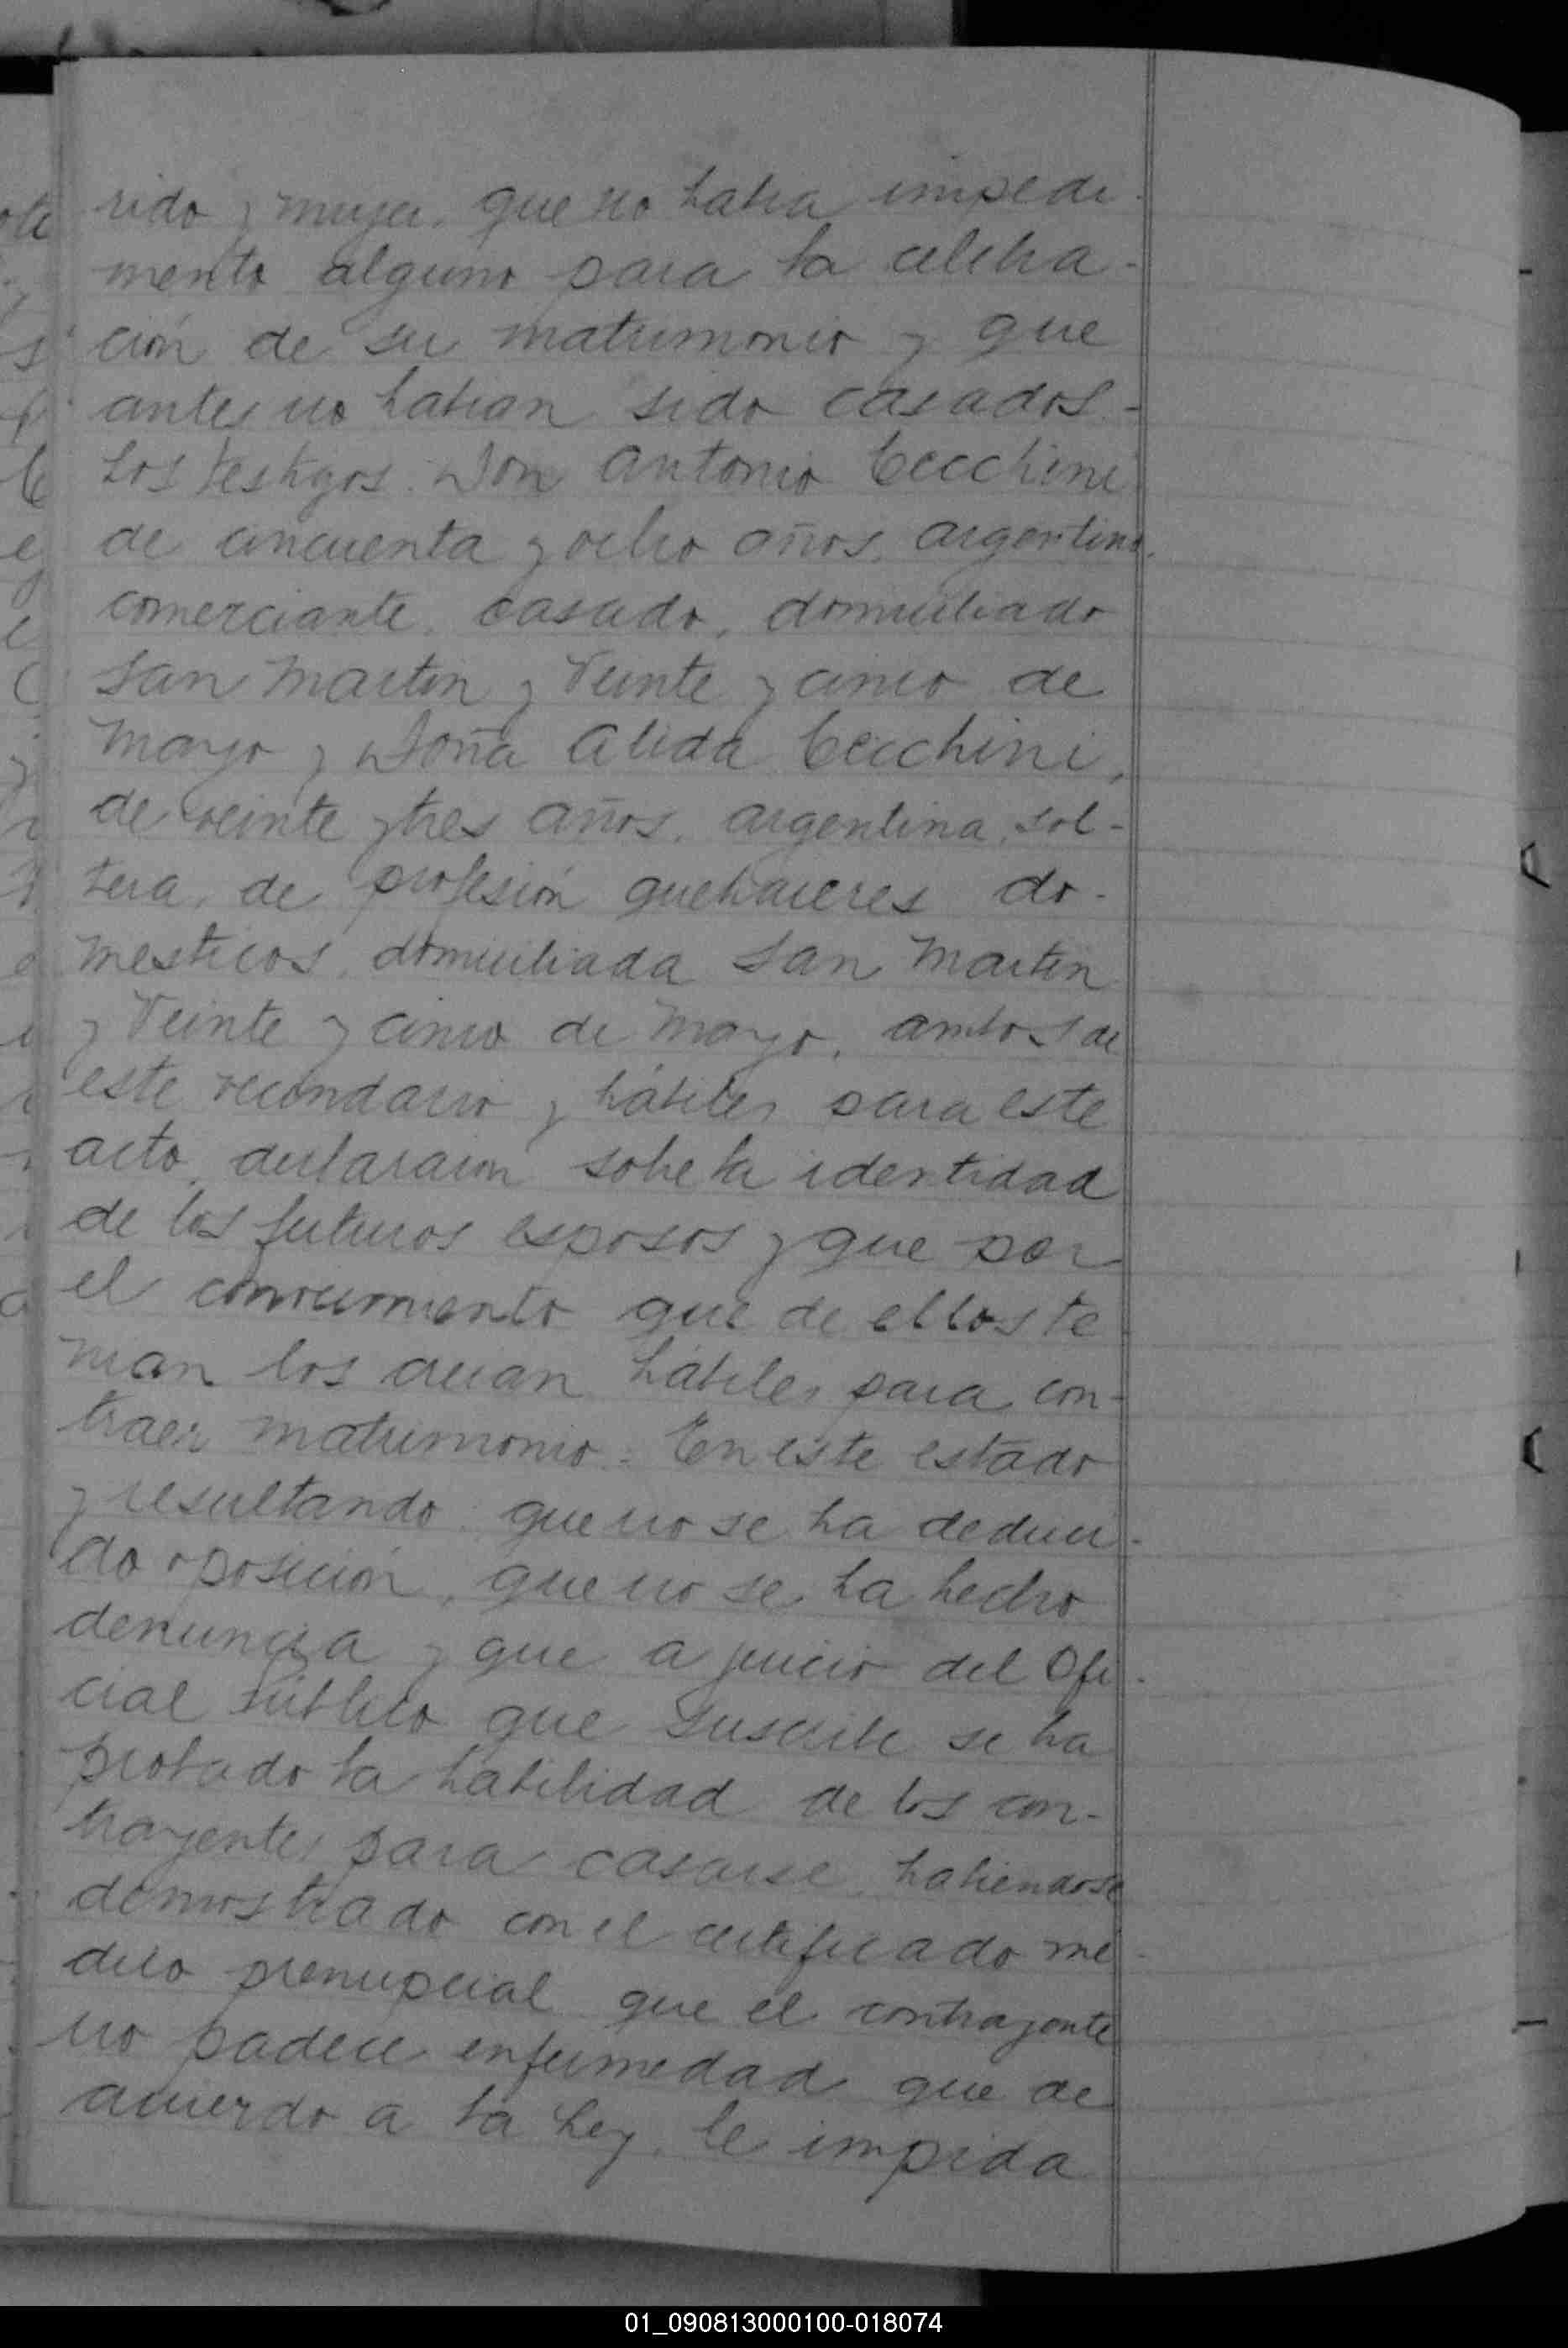 rido y mujer, que no habia impedi-
mento alguno para la celebra-
ción de su matrimonio y que
antes no habian sido casados.-
Los testigos. Don Antonio Cecchini
de cincuenta y ocho años, argentino,
comerciante, casado, domiciliado
San Martin y Veinte y cinco de
Mayo y Doña Alida Cecchini,
de veinte y tres años, argentina, sol-
tera, de profesión quehaceres do-
mesticos, domiciliada San Martin
y Veinte y cinco de Mayo, ambos de
este vecindario y hábiles para este
acto, declararon sobre la identidad
de los futuros esposos y que por
el conocimiento que de ellos te
nian los creian hábiles para con-
traer matrimonio.- En este estado
y resultando que no se ha deduci-
do oposición, que no se ha hecho
denuncia y que a juicio del Ofi-
cial Público que suscribe se ha
probado la habilidad de los con-
trayentes para casarse, habiendose
demostrado con el certificado me-
dico prenupcial que el contrayente
no padece enfermedad que de
acuerdo a la Ley, le impida
01_090813000100-018074